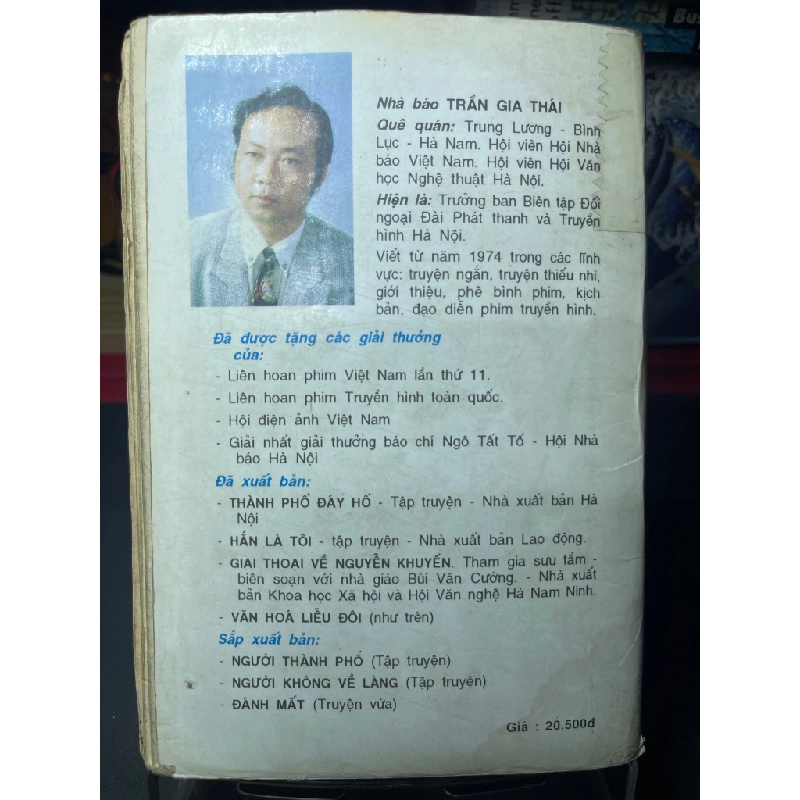 Nhà báo TRẦN GIA THÁI
Quê quán: Trung Lương - Bình
Lục - Hà Nam. Hội viên Hội Nhà
báo Việt Nam. Hội viên Hội Văn
học Nghệ thuật Hà Nội.
Hiện là: Trưởng ban Biên tập Đối
ngoại Đài Phát thanh và Truyền
hình Hà Nội.
Viết từ năm 1974 trong các lĩnh
vực: truyện ngắn, truyện thiếu nhi,
giới thiệu, phê bình phim, kịch
bản, đạo diễn phim truyền hình.
Đã được tặng các giải thưởng
của:
- Liên hoan phim Việt Nam lần thứ 11.
- Liên hoan phim Truyền hình toàn quốc.
- Hội điện ảnh Việt Nam
- Giải nhất giải thưởng báo chí Ngô Tất Tố - Hội Nhà
báo Hà Nội
Đã xuất bản:
- THÀNH PHỐ ĐÂY HỐ - Tập truyện - Nhà xuất bản Hà
Nội
- HẮN LÀ TÔI - tập truyện - Nhà xuất bản Lao động.
- GIAI THOẠI VỀ NGUYỄN KHUYẾN. Tham gia sưu tầm -
biên soạn với nhà giáo Bùi Văn Cường. - Nhà xuất
bản Khoa học Xã hội và Hội Văn nghệ Hà Nam Ninh.
- VĂN HOÁ LIỄU ĐÔI (như trên)
Sắp xuất bản:
- NGƯỜI THÀNH PHỐ (Tập truyện)
- NGƯỜI KHÔNG VỀ LÀNG (Tập truyện)
- ĐÀNH MẤT (Truyện vừa)
Giá : 20.500đ